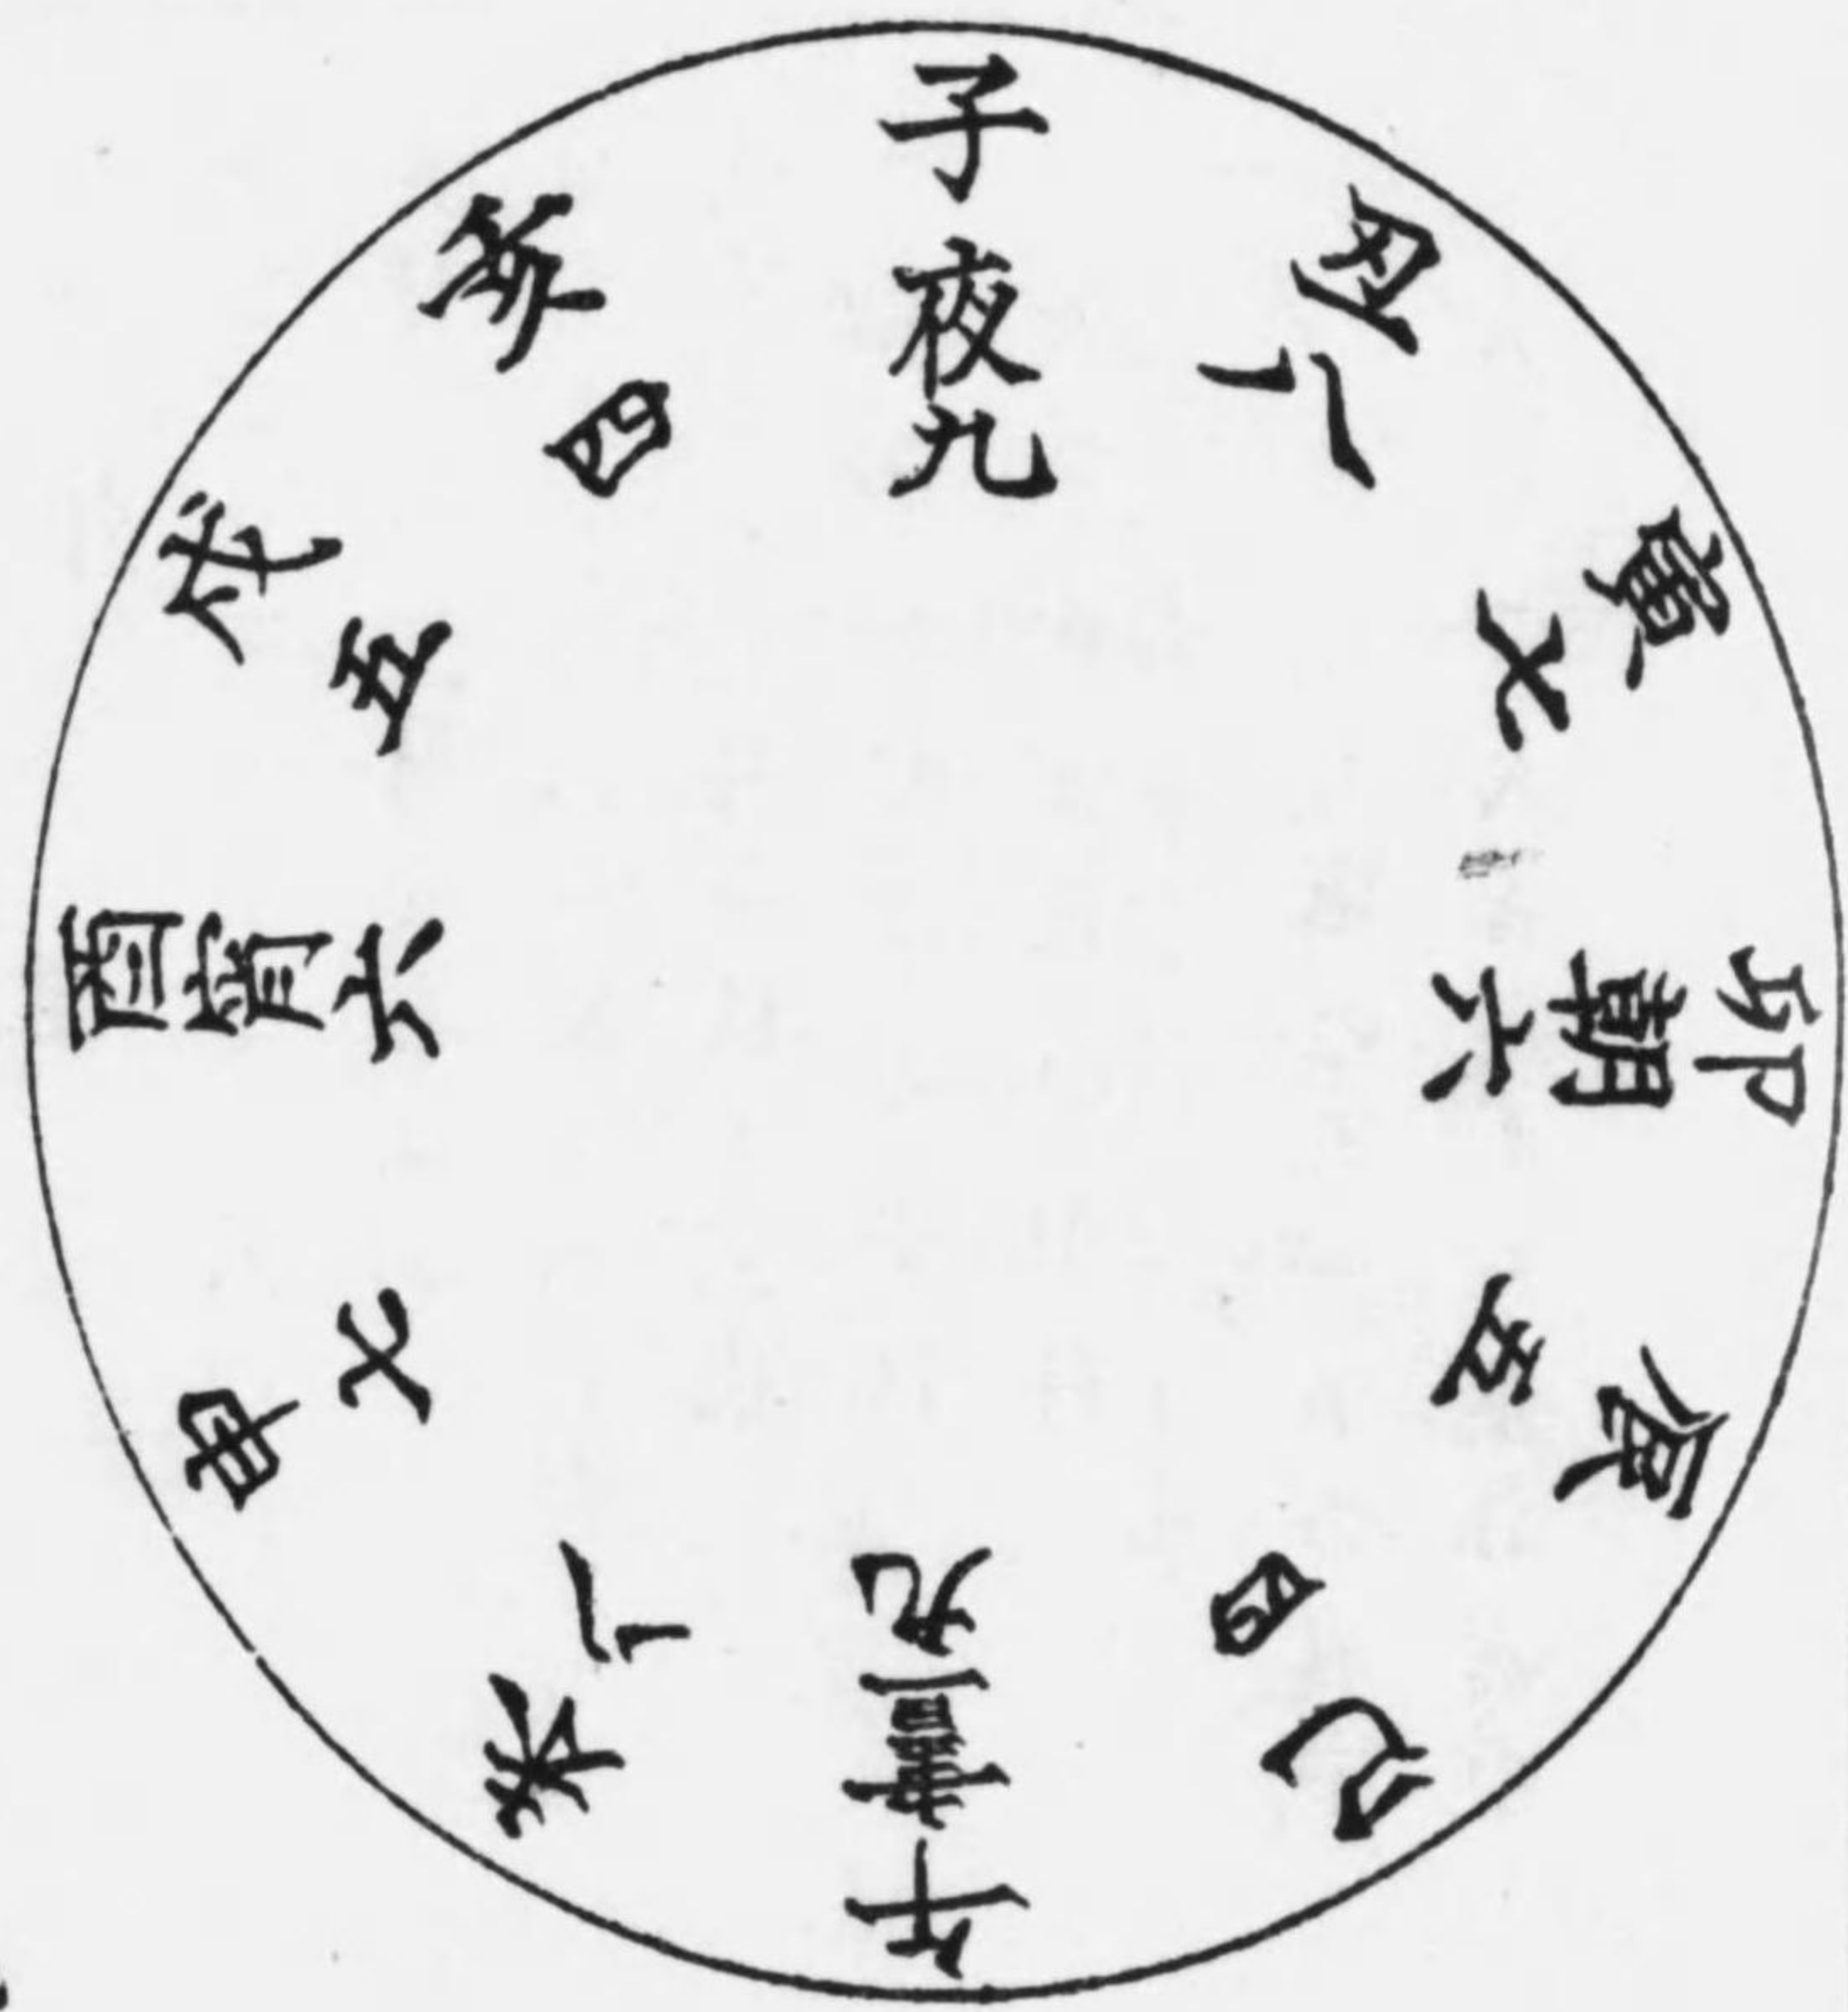 子夜九
丑八
寅七
卯朝六
辰五
巳四
午晝九
未八
申七
酉宵六
戌五
亥四